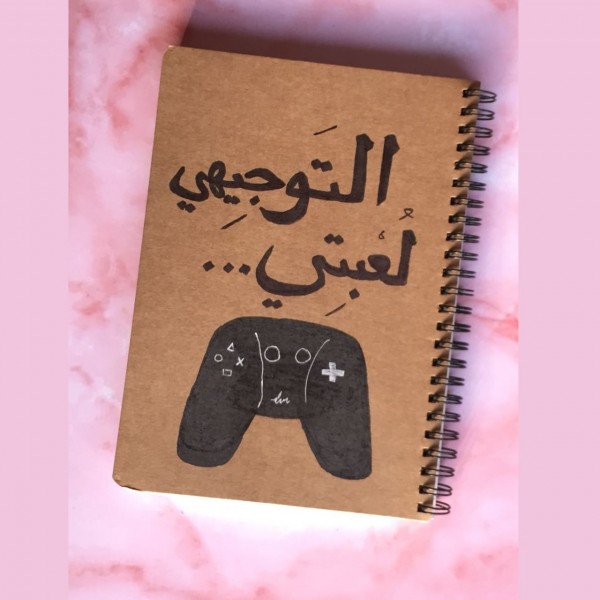 التَوجِيهي
لُعْبتِي...